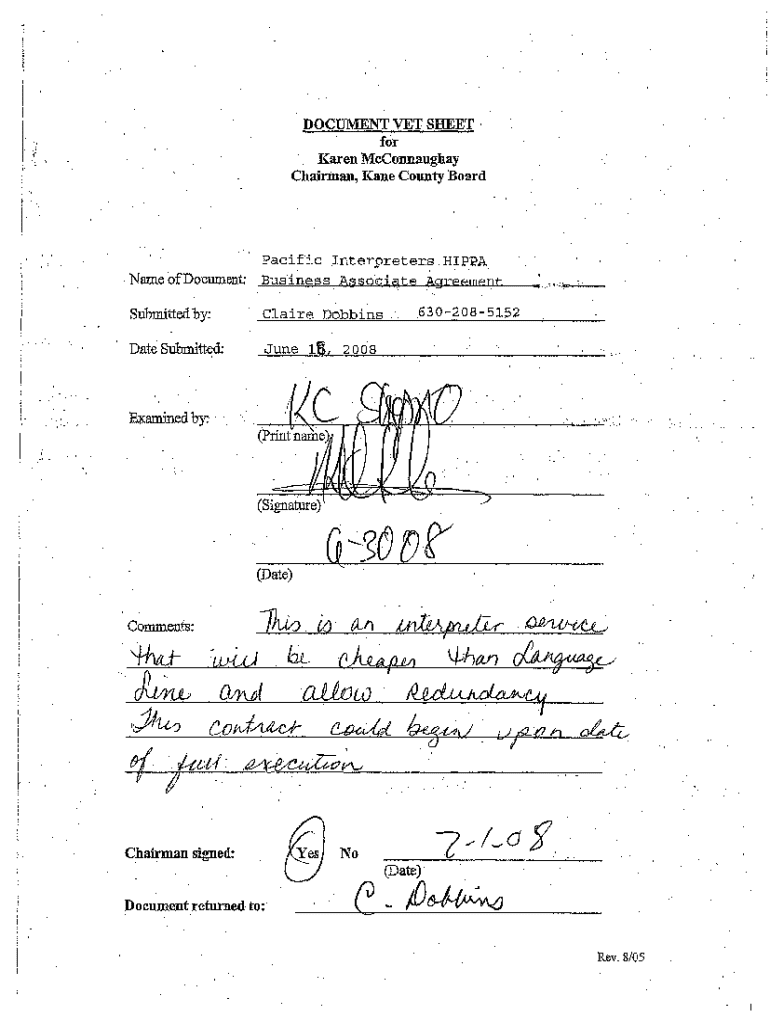 DOCUMENT VET SHEET
for
Karen McConnaughay
Chairman, Kane County Board
Pacific Interpreters HIPPA
Name of Document: Business Associate Agreement
Submitted by: Claire Dobbins 630-208-5152
Date Submitted: June 18, 2008
Examined by: KC
(Print name)
(Signature)
6-3008
(Date)
Comments: This is an interpreter service
that will be cheaper than Language
Line and allow Redundancy
This contract could begin upon date
of full execution
Chairman signed: Yes No 7-1-08
(Date)
Document returned to: C. Dobbins
Rev. 8/05